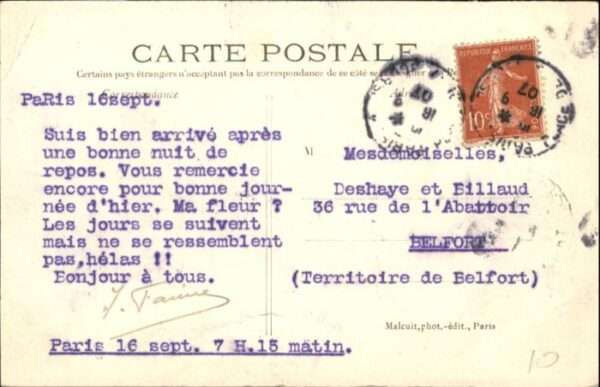 CARTE POSTALE
Certains pays étrangers n'acceptent pas la correspondance de ce côté se
Correspondance
REPUBLIQUE FRANÇAISE
10c
PaRis 16sept.
Suis bien arrivé après
une bonne nuit de
repos. Vous remercie
encore pour bonne jour-
née d'hier. Ma fleur ?
Les jours se suivent
mais ne se ressemblent
pas,hélas !!
Bonjour à tous.
M
Mesdemoiselles,
Deshaye et Billaud
36 rue de l'Abattoir
BELFORT
(Territoire de Belfort)
Malcuit,phot.-édit., Paris
Paris 16 sept. 7 H.15 matin.
10